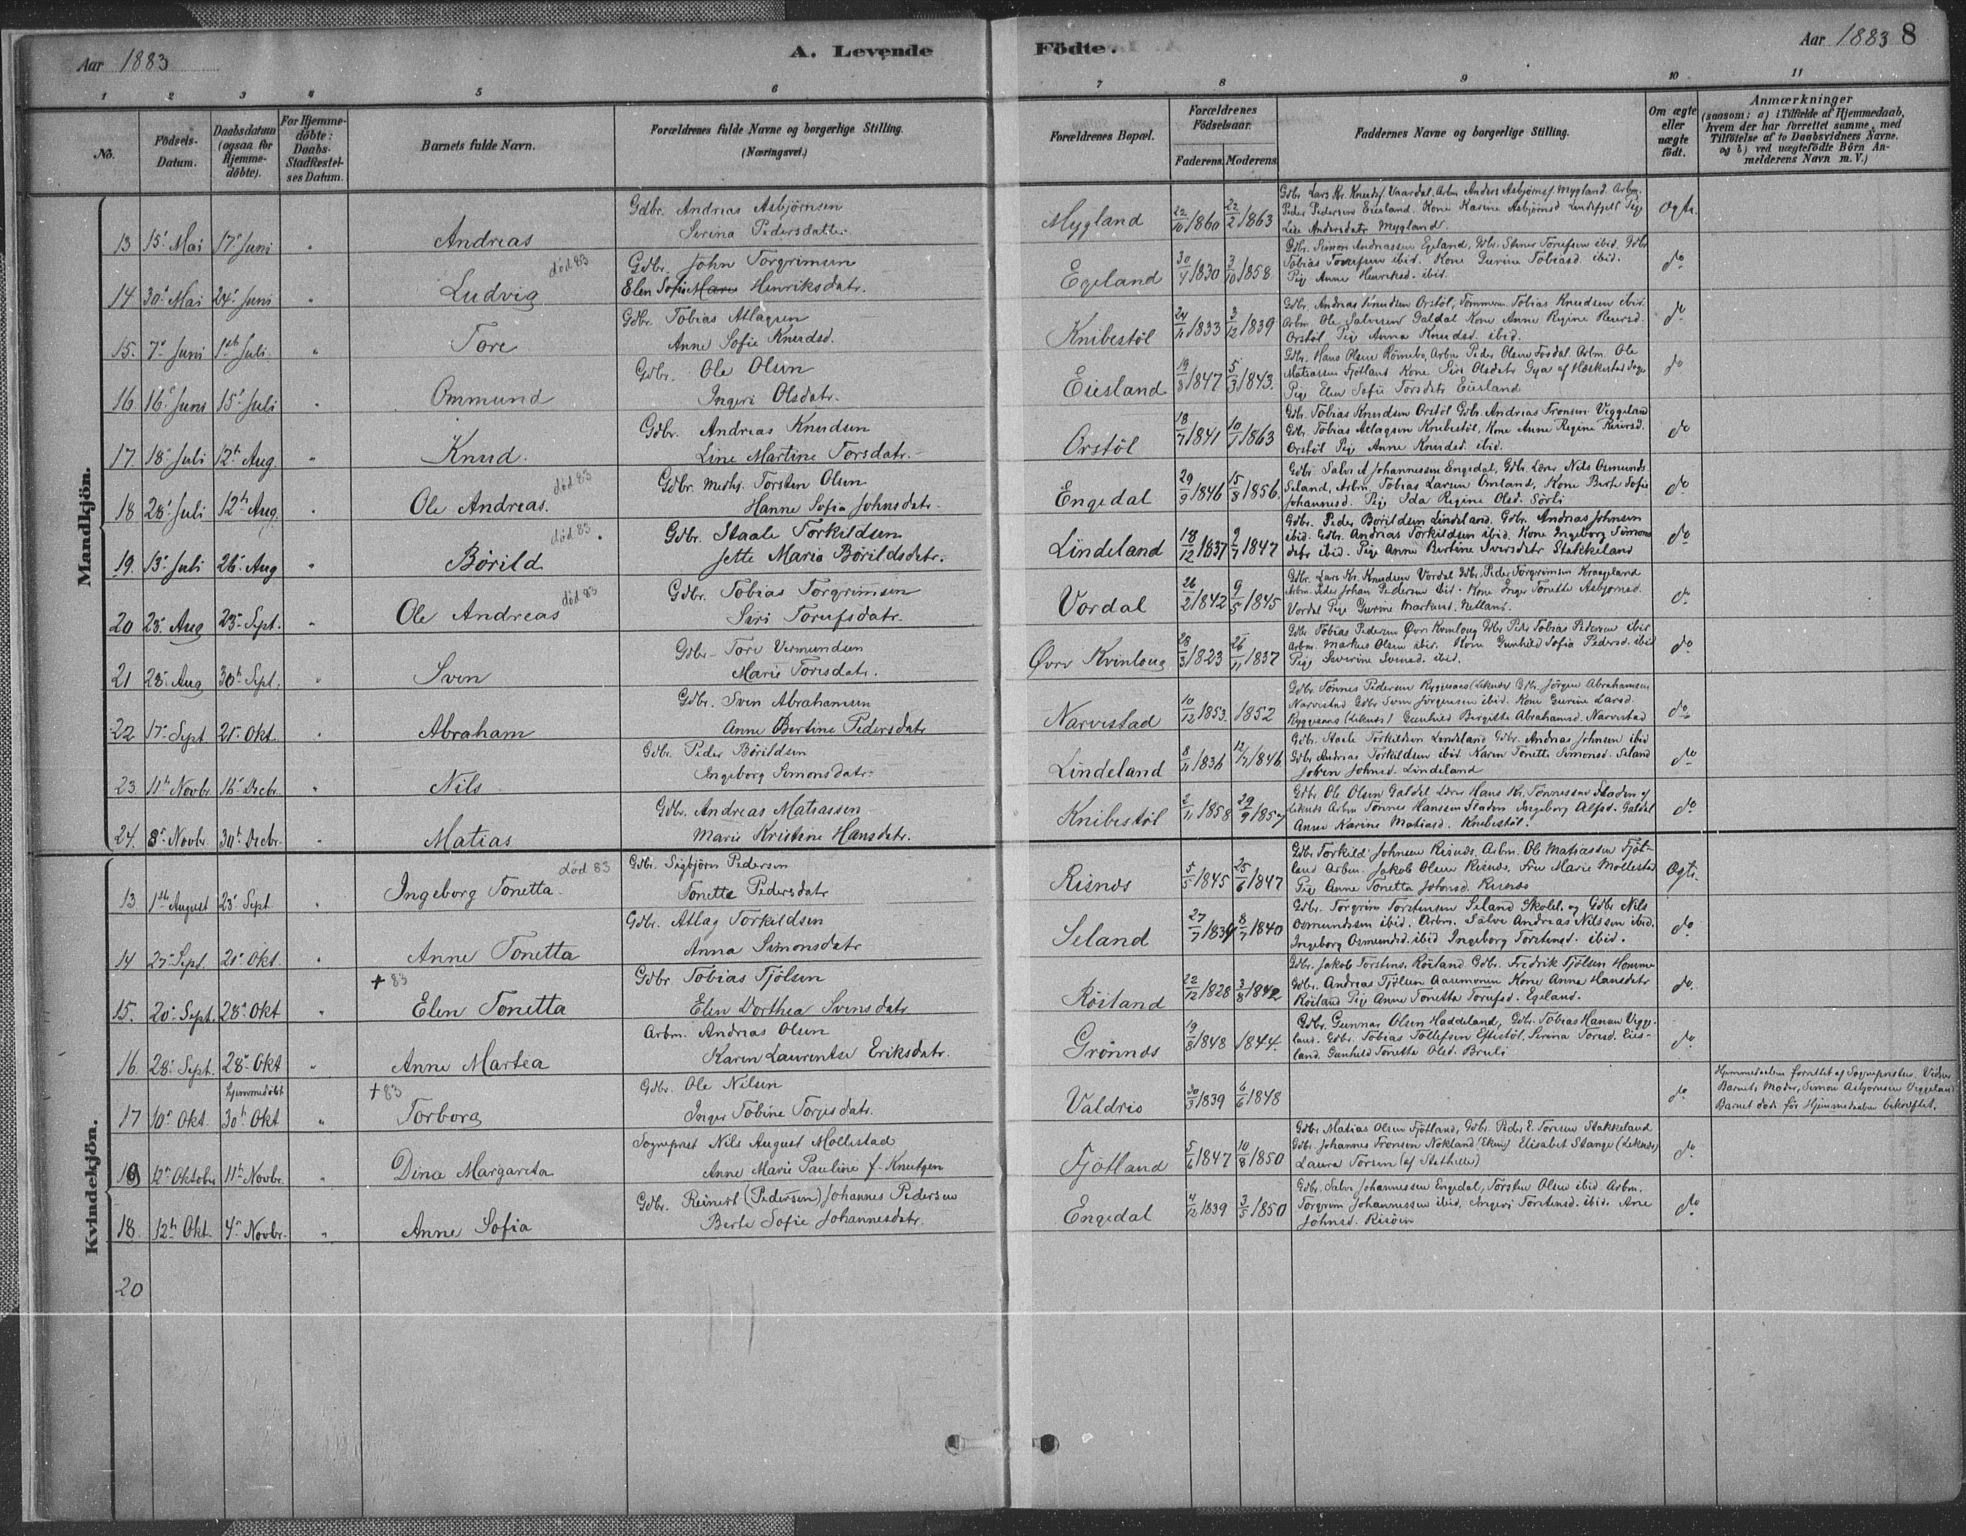 Aar 1883
A. Levende
Födte.
Aar 1883 8
1 2 3 4 5 6 7 8 9 10 11
No.
Födsels-Datum.
Daabsdatum (ogsaa for Hjemme-döbte).
For Hjemme-döbte: Daabs-Stadfæstelses Datum.
Barnets fulde Navn.
Forældrenes fulde Navne og borgerlige Stilling. (Næringsvei.)
Forældrenes Bopæl.
Forældrenes Födselsaar.
Faderens. Moderens.
Faddernes Navne og borgerlige Stilling.
Om ægte eller uægte födt.
Anmærkninger
(saasom: a) i Tilfælde af Hjemmedaab, hvem der har forrettet samme, med Tilföielse af to Daabsvidners Navne. og b) ved uægtefödte Börn Anmelderens Navn m. V.)
Mandkjön.
13 15de Mai 17de Juni " Andreas Gdbr. Andreas Asbjörnsen
Serina Pedersdatter. Mygland 22/10 1860 22/2 1863
Gdbr Lars Kr. Knudsf. Vaardal, Arbm Anders Asbjörnsf Mygland. Arbm.
Peder Pedersen Eiesland. Kone Karine Asbjörnsd. Lindefjeld Pige
Lise Andersdatr Mygland. Ægte.
14 30de Mai 24de Juni " Ludvig død 83 Gdbr. John Torgrimsen
Elen Sofie Marie Henriksdatr. Egeland 30/1 1830 3/10 1858
Gdbr. Simon Andreassen Egeland, Gdbr. Stener Torufsen ibid. Gdbr
Tobias Torufsen ibid. Kone Gurine Tobiasd. ibid.
Pige Anne Henriksd. ibid. do
15. 7de Juni 1ste Juli " Tore Gdbr. Tobias Atlagsen
Anne Sofie Knudsd. Knibestöl 24/11 1833 3/12 1839
Gdbr. Andreas Knudsen Orstöl, Tömmerm. Tobias Knudsen ibid.
Arbm Ole Salvesen Galdal Kone Anne Regine Reiersd.
Orstöl Pige Anna Knudsd. ibid. do
16 16de Juni 15de Juli " Ommund Gdbr. Ole Olsen
Ingeri Olsdatr. Eiesland 19/8 1847 5/3 1843.
Gdbr. Hans Olsen Rømebo, Arbm Peder Olsen Fosdal Arbm. Ole
Matiassen Fjotland Kone Siri Olsdatr Gya af Hæskestad Sogn
Pige Elen Sofie Torsdatr Eiesland do
17. 18de Juli 12te Aug. " Knud. Gdbr. Andreas Knudsen
Line Martine Torsdatr. Orstöl 18/7 1841 10/1 1863
Gdbr. Tobias Knudsen Orstöl Gdbr. Andreas Tronsen Veggeland
Gdbr. Tobias Atlagsen Knibestöl, Kone Anne Regine Reiersd.
Orstöl Pige Anne Knudsd. ibid. do
18 28de Juli 12te Aug. " Ole Andreas. død 83 Gdbr. Torsten Olsen
Hanne Sofia Johnsdatr. Engedal 29/9 1846 15/8 1856.
Gdbr. Salve A Johannessen Engedal, Gdbr. Lærer Nils Osmunds.
Seland, Arbm. Tobias Larsen Omland, Kone Berte Sofie
Johannesd. Pige Ida Regine Olsd. Sörli do
19. 13de Juli 26de Aug " Börild død 83 Gdbr. Staale Torkildsen
Jette Maria Börildsdatr. Lindeland 18/12 1837 2/7 1847
Gdbr. Peder Borildsen Lindeland. Gdbr. Andreas Johnsen
ibid. Gdbr. Andreas Torkildsen ibid. Kone Ingeborg Simonsdatr
ibid. Pige Anne Bertine Iversdatr Stakkeland do
20 25de Aug 23de Sept. " Ole Andreas død 83 Gdbr. Tobias Torgrimsen
Siri Torufsdatr. Vordal 26/2 1842 9/5 1845
Gdbr. Lars Kr. Knudsen Vordal Gdbr. Peder Torgrimsen Kraageland
Arbm. Peder Johan Pedersen ibid. Kone Inger Tonette Asbjörnsd.
Vordal Pige Gurine Markusd. Netland. do
21 23de Aug 30te Sept. " Sven Gdbr. Tore Vermundsen
Marie Torsdatr. Øvre Kvinloug 28/3 1823 26/11 1837
Gdbr Tobias Pedersen Øvre Kvinloug Gdbr Peder Tobias Pedersen ibid
Arbm. Markus Olsen ibid. Kone Gunhild Sofia Pedersd. ibid
Pige Severine Svensd. ibid. do
22 17de Sept 21de Okt. " Abraham Gdbr. Sven Abrahamsen
Anne Bertine Pedersdatr Narvestad 10/12 1853. 1852
Gdbr. Tönnes Pedersen Ryggesaas (Liknæs) Gdbr. Jörgen Abrahamsen
Narvestad Gdbr Sven Jörgensen ibid. Kone Gurine Larsd.
Ryggesaas (Liknæs) Gunhild Bergitte Abrahamsd. Narvestad do
23. 11te Novbr 16de Decbr. " Nils Gdbr. Peder Börildsen
Ingeborg Simonsdatr. Lindeland 8/11 1836 12/7 1846
Gdbr. Staale Torkildsen Lindeland Gdbr. Andreas Johnsen ibid
Gdbr Andreas Torkildsen ibid. Karen Tonette Simonsd. Seland
Johnsd. Lindeland do
24. 8de Novbr. 30te Decbr. " Matias Gdbr. Andreas Matiassen
Marie Kristine Hansdatr. Knibestöl 2/11 1858 29/9 1857
Gdbr Ole Olsen Galdal Lærer Hans Kr. Tönnessen Staden af
Liknæs Arbm Tönnes Hanssen Staden Ingeborg Alfsd. Galdal
Anne Karine Matiasd. Knibestöl. do
Kvindekjön.
13 1ste August 23de Sept. " Ingeborg Tonetta. død 83 Gdbr. Sigbjörn Pedersen
Tonette Pedersdatr Risnæs 5/5 1845 25/6 1847
Gdbr Torkild Johnsen Risnæs, Arbm. Ole Matiassen Fjot-
land Arbm. Jakob Olsen Risnæs, Fru Marie Möllestad
Pige Anne Tonetta Johnsd. Risnæs Ægte.
14 25de Sept. 21de Okt. " Anne Tonetta Gdbr. Atlag Torkildsen
Anna Simonsdatr Seland 27/7 1834 8/7 1840
Gdbr. Torgrim Torstensen Seland Skolel. og Gdbr Nils
Osmundsen ibid. Arbm. Salve Andreas Nilssen ibid.
Ingeborg Osmundsd. ibid Ingeborg Torstensd. ibid. do
15. 20de Sept. 28de Okt " + 83 Elen Tonetta Gdbr Tobias Tjölsen
Elen Dorthea Svensdatr Röiland 22/12 1828 3/8 1842
Gdbr. Jakob Torstens. Röiland. Gdbr. Fredrik Tjölsen Homme
Gdbr. Andreas Tjölsen Aasemoen Kone Anna Hansdatr
Röiland Pige Anne Tonetta Torufsd. Egeland. do
16. 28de Sept. 28de Okt " Anne Martea Arbm. Andreas Olsen
Karen Laurentse Eriksdatr. Grönnæs 19/8 1848 1844.
Gdbr. Gunnar Olsen Haddeland, Gdbr. Tobias Hansen Vegge-
land. Gdbr. Tobias Tollefsen Eftestöl, Serina Torsd. Eies-
land. Gunhild Tonette Olsd. Bruli do
17 10de Okt. Hjemmedöbt 30te Okt " + 83 Torborg Gdbr. Ole Nilsen
Inger Tobine Torjesdatr. Valdris 30/3 1839 6/6 1848 do
Hjemmedaaben forrettet af Sognepresten. Vidner
Barnets Moder, Simon Asbjörnsen Veggeland
Barnet døde før Hjemmedaaben bekræftet.
19 12te Oktober 11te Novbr. " Dina Margareta Sogneprest Nils August Möllestad
Anne Marie Pauline f. Knutzen Fjotland 5/6 1847 10/8 1850
Gdbr Matias Olsen Fjotland, Gdbr. Peder E. Torsen Stakkeland
Gdbr. Johannes Tronsen Nökland (Eken) Elisabet Stange (Liknæs)
Laura Torsen (af Stathelle) do
18. 12te Okt. 4de Novbr. " Anne Sofia Gdbr. Reinert (Pedersen) Johannes Pedersen
Berte Sofie Johannesdatr. Engedal 4/12 1839 3/5 1850
Gdbr. Salve Johannessen Engedal, Torsten Olsen ibid Arbm.
Torgrim Johannessen ibid, Ingeri Torstensd. ibid. Ane
Johnsd. Risöen do
20